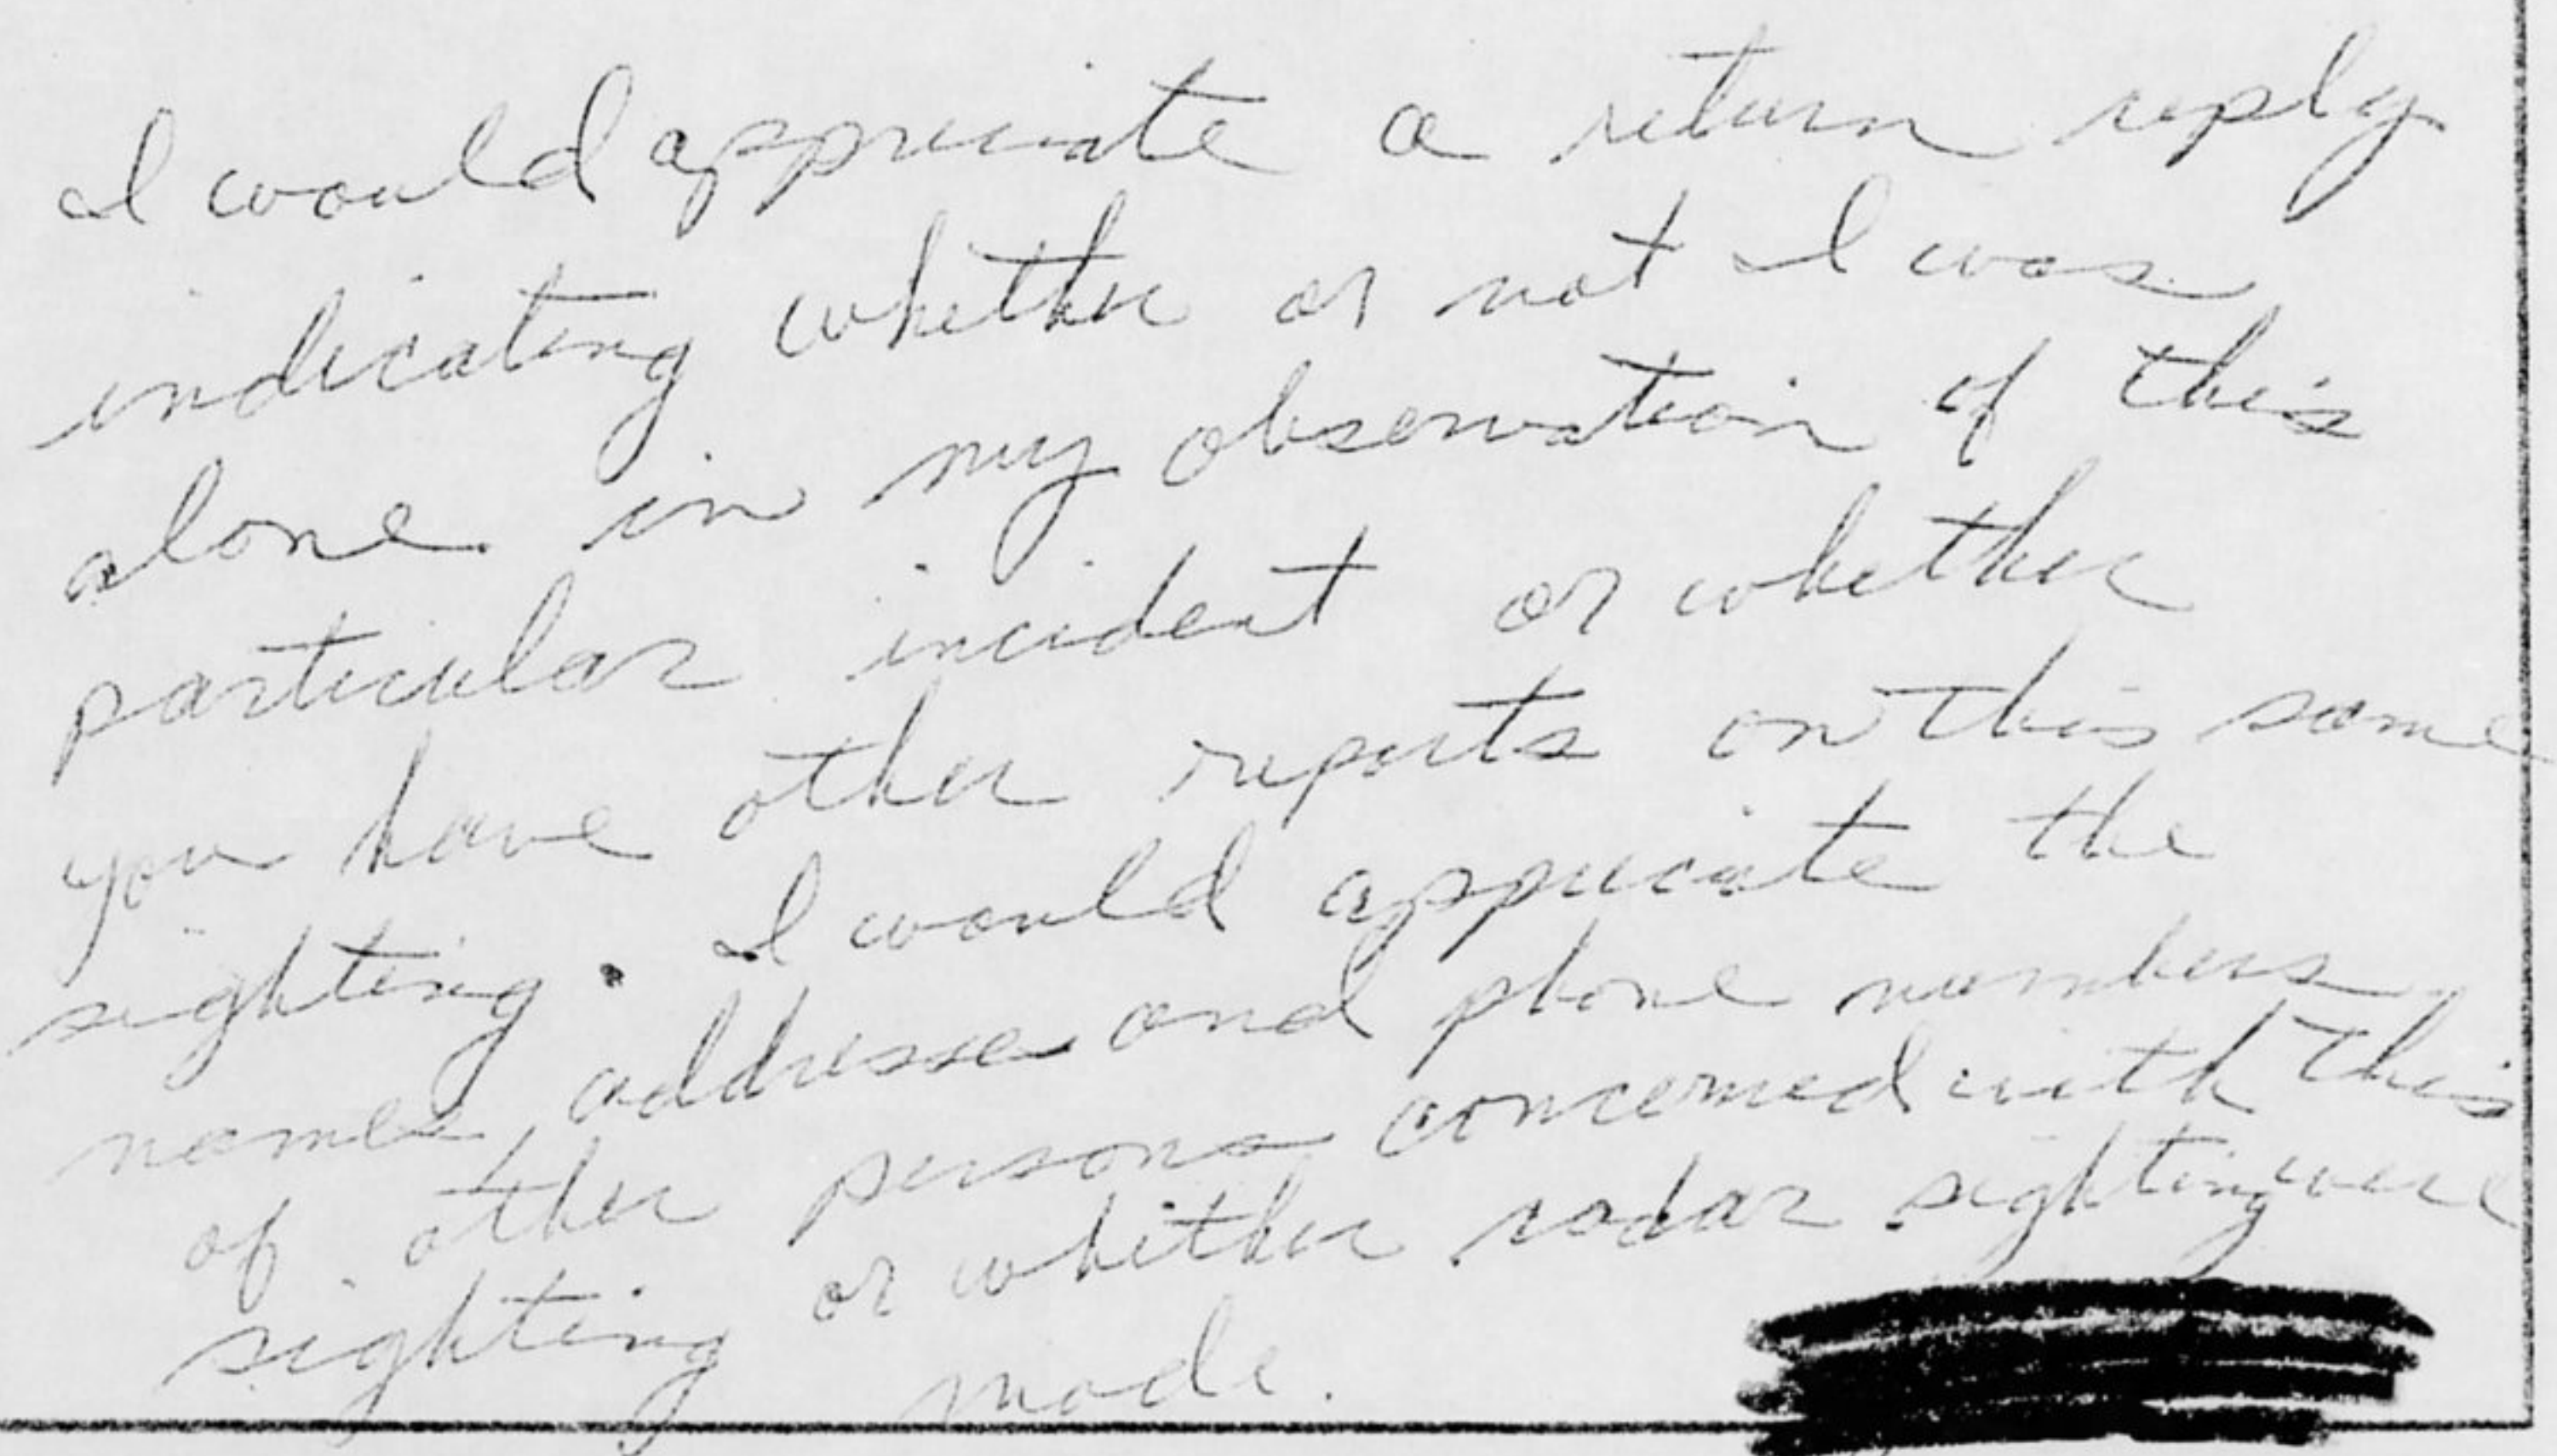 I would appreciate a return reply
indicating whether or not I was
alone in my observation of this
particular incident or whether
you have other reports on this same
sighting. I would appreciate the
names, addresses and phone numbers
of other persons concerned with this
sighting or whether radar sighting were
made.